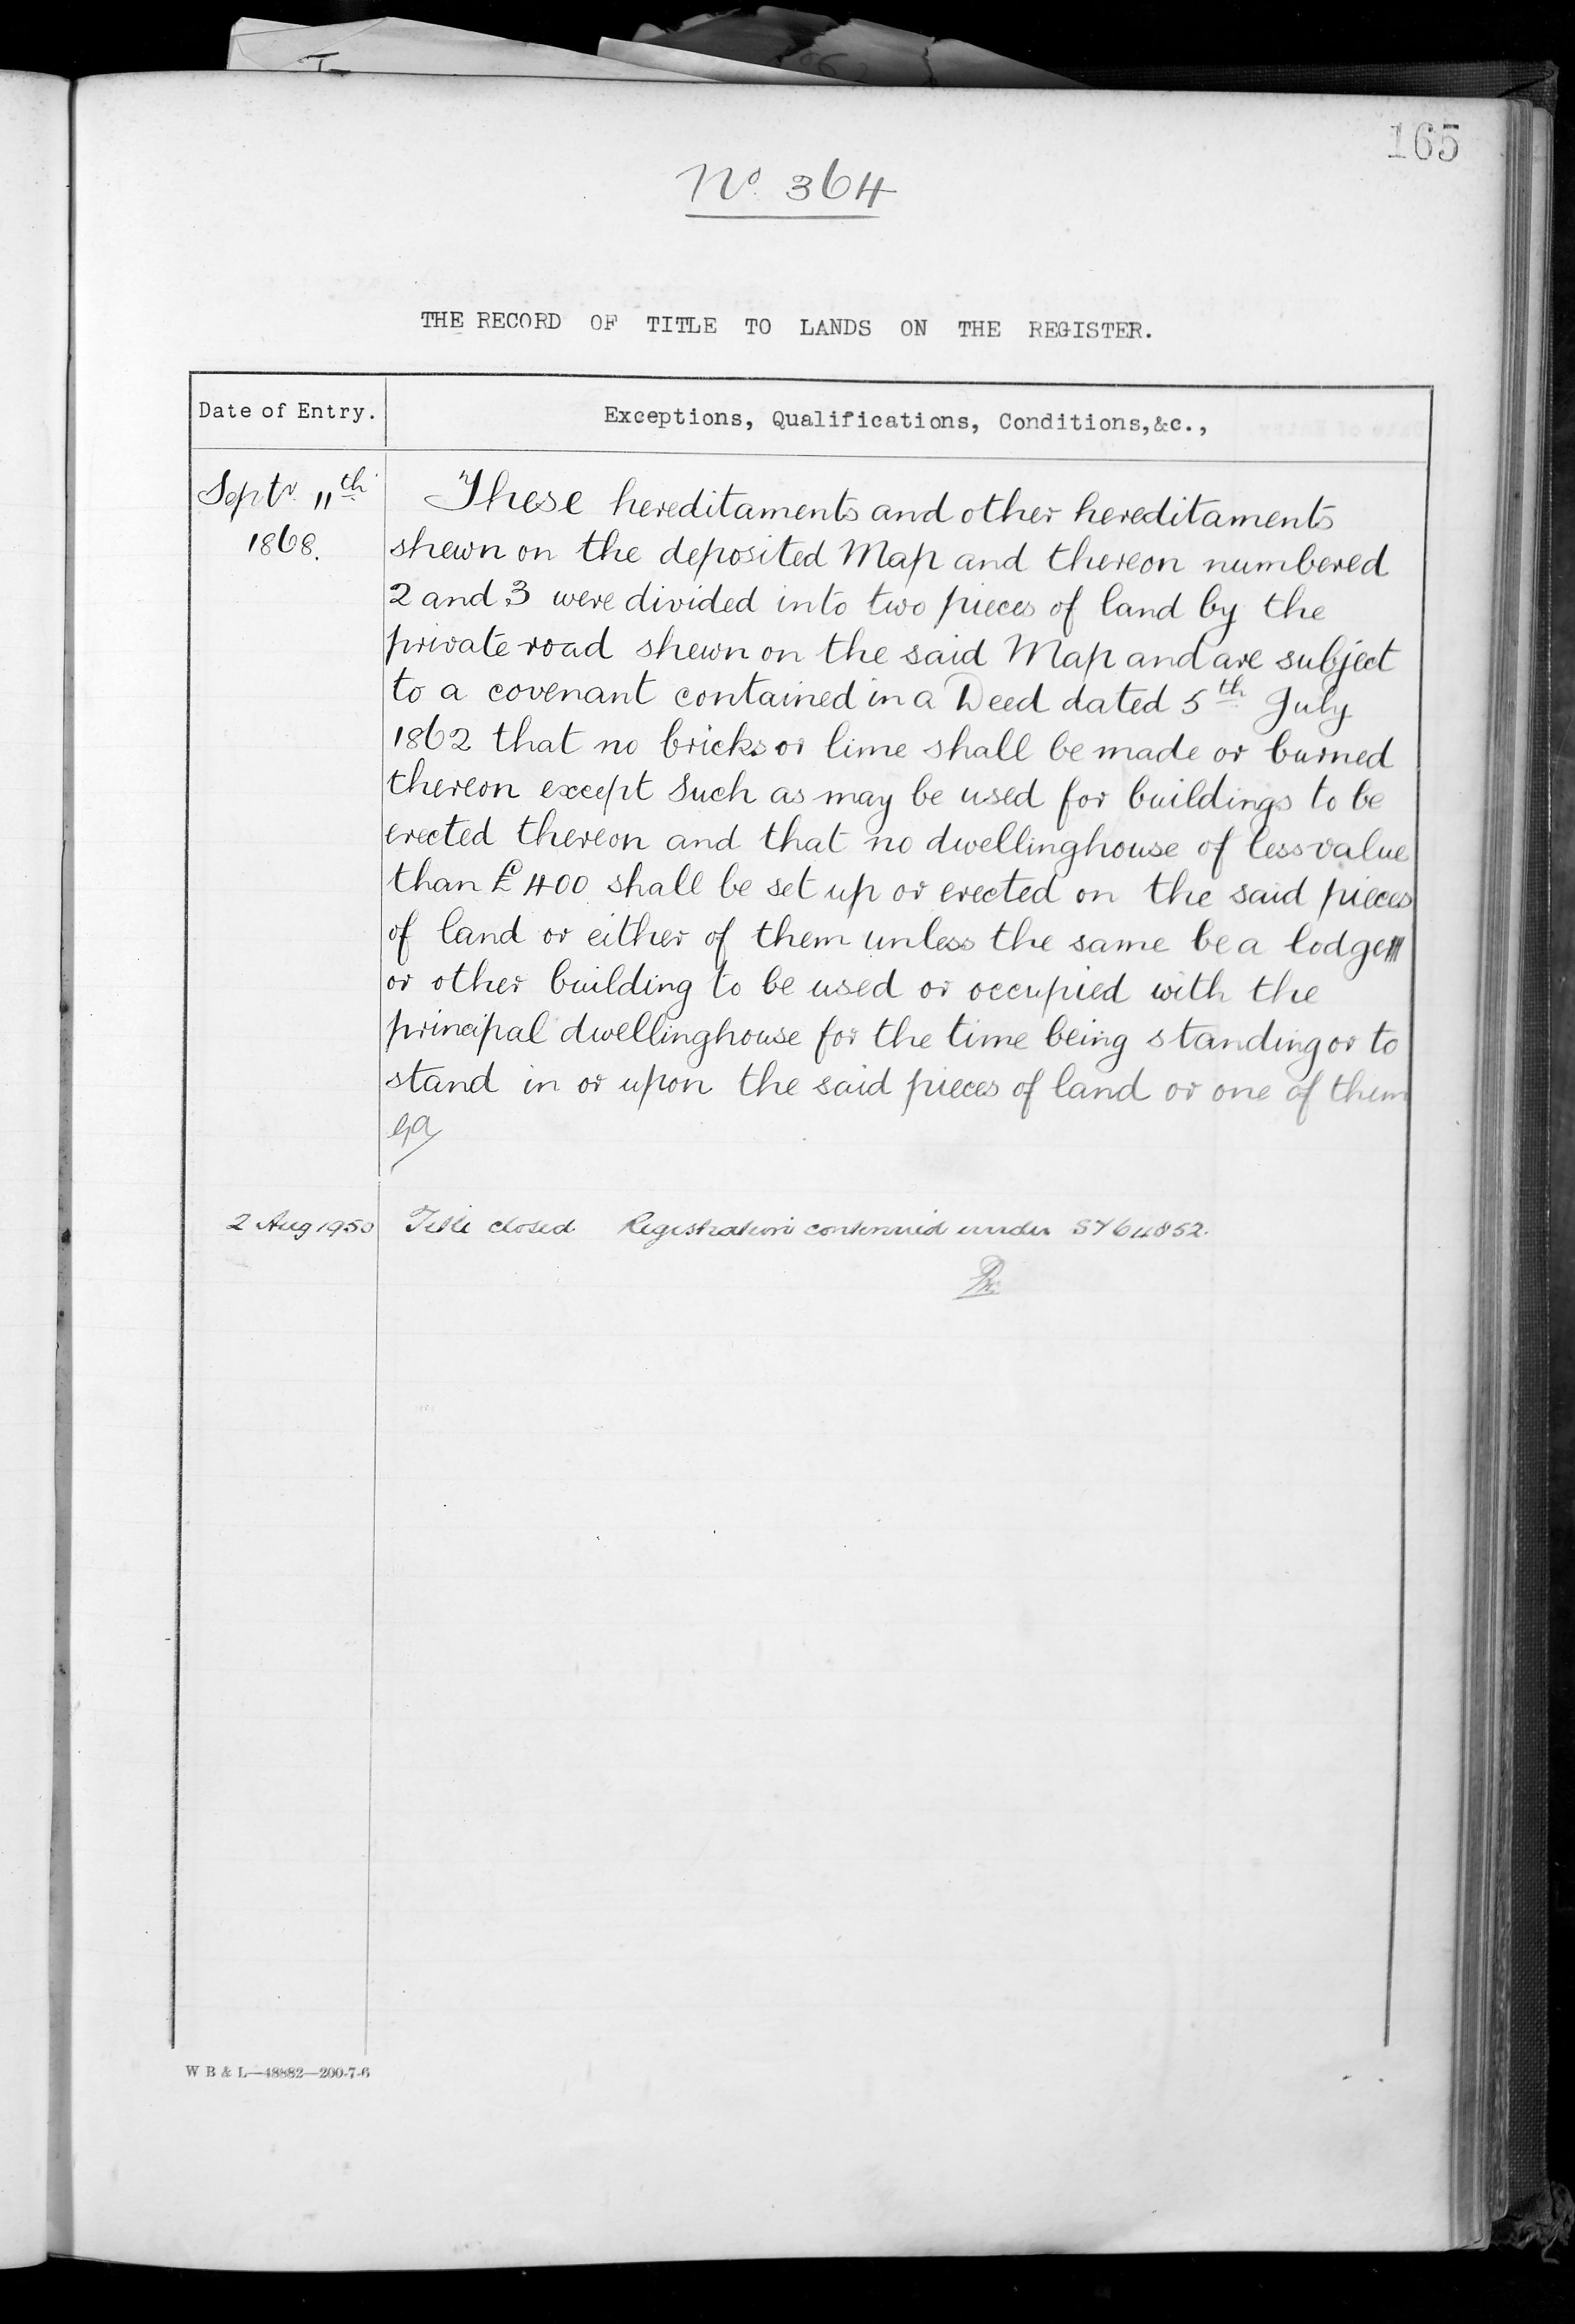 165
No. 364
THE RECORD OF TITLE TO LANDS ON THE REGISTER.
Date of Entry. Exceptions, Qualifications, Conditions,&c.,
Septr 11th 1868.
These hereditaments and other hereditaments
shewn on the deposited Map and thereon numbered
2 and 3 were divided into two pieces of land by the
private road shewn on the said Map and are subject
to a covenant contained in a Deed dated 5th July
1862 that no bricks or lime shall be made or burned
thereon except such as may be used for buildings to be
erected thereon and that no dwellinghouse of less value
than £400 shall be set up or erected on the said pieces
of land or either of them unless the same be a lodge
or other building to be used or occupied with the
principal dwellinghouse for the time being standing or to
stand in or upon the said pieces of land or one of them
2 Aug 1950 Title closed Registration continued under SY64852.
W B & L—48882—200-7-6